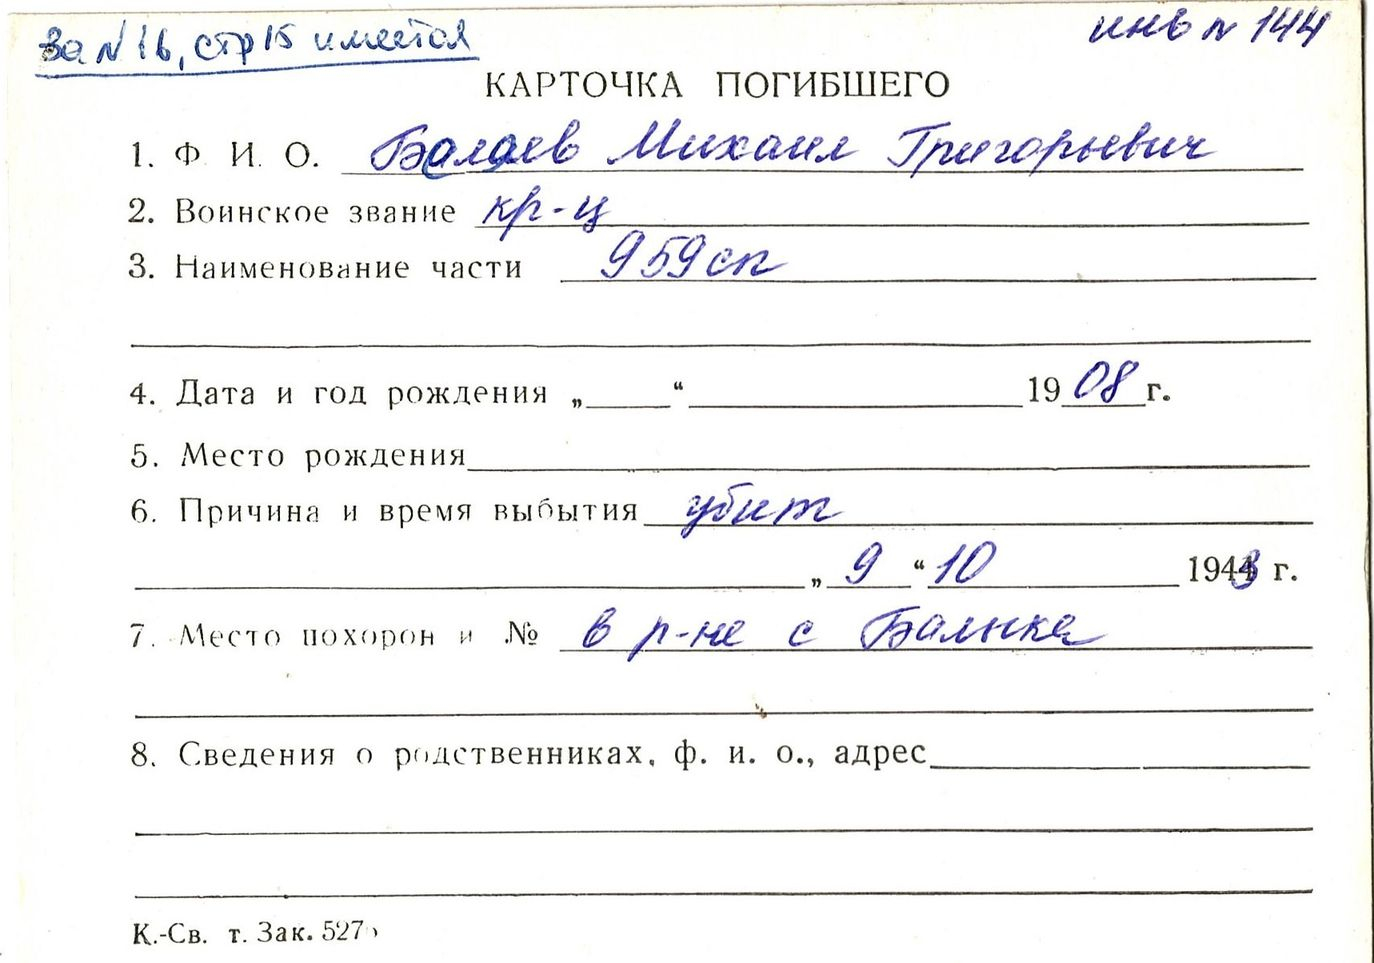 за N 16, стр 15 имеется
инв N 144
КАРТОЧКА ПОГИБШЕГО
1. Ф И. О. Балаев Михаил Григорьевич
2. Воинское звание кр-ц
3. Наименование части 959 сп
4. Дата и год рождения „ “ 19 08 г.
5. Место рождения
6. Причина и время выбытия убит
„ 9 “ 10 1943 г.
7. Место похорон и № в р-не с Балыка
8. Сведения о родственниках, ф. и. о., адрес
К.-Св. т. Зак. 527